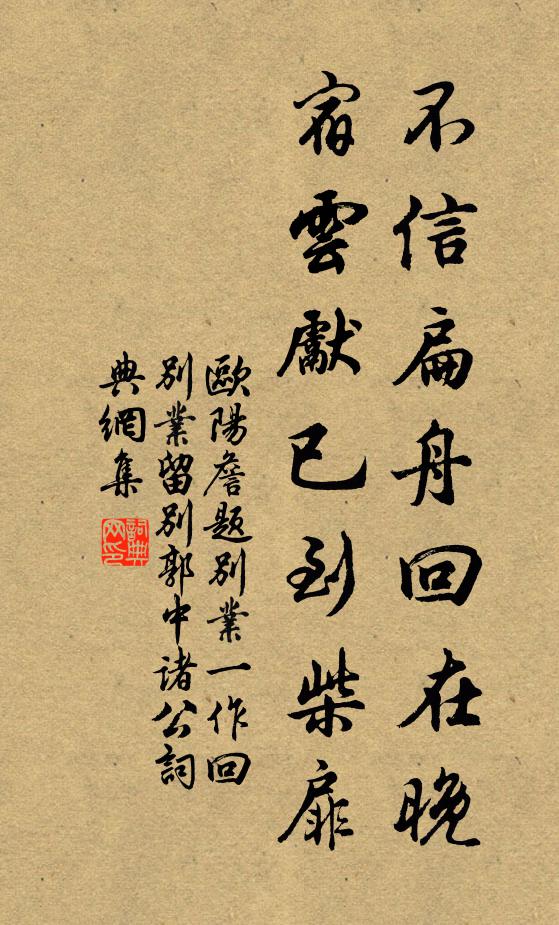 不信扁舟回在晚
宿雲獻已到柴扉
歐陽詹題別業一作回
別業留別郭中諸公詞
典網集
詞典网印